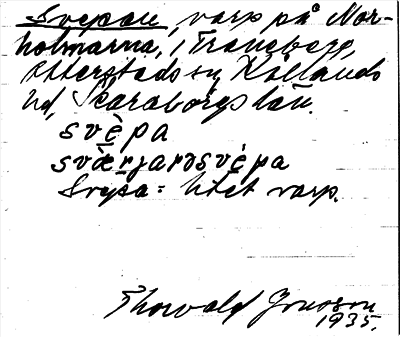 Svepan, varp på Nor-
holmarna, i Traneberg,
Otterstads sn Kållands
hd, Skaraborgs län.
svèpa
sværjarəsvèpa
Svepa = litet varp.
Thorvald Jonsson
1935.